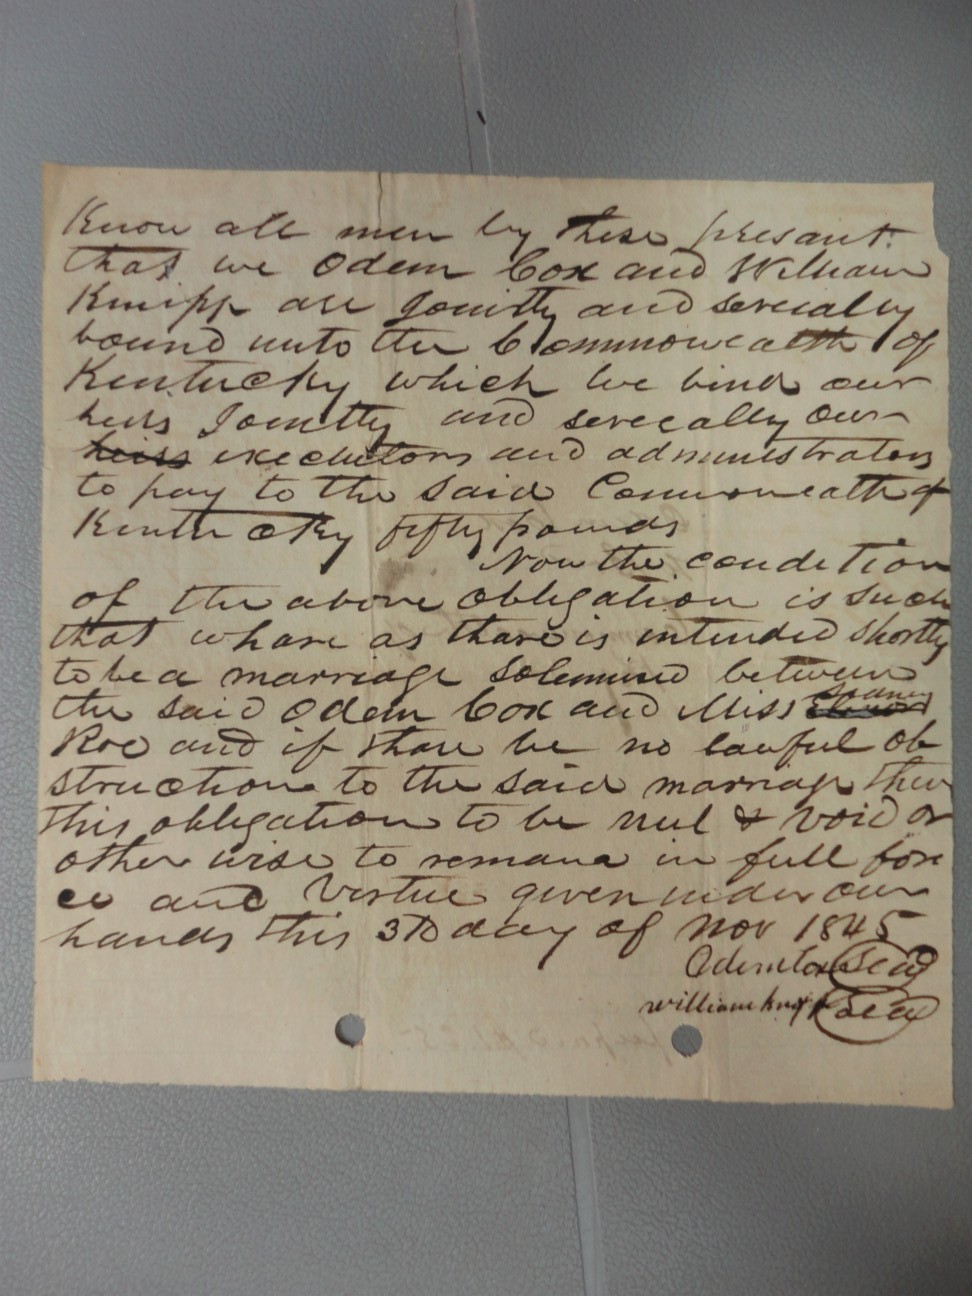 Know all men by these presant.
that we Odem Cox and William
Knipp are Jointly and severally
bound unto the Commonwealth of
Kentucky which we bind our
heirs Jointly and severally our
heirs executors and administrators
to pay to the said Commonwealth of
Kentucky fifty pounds
Now the condition
of the above obligation is such
that whare as thare is intended shortly
to be a marriage solemnised between
the said Odem Cox and Miss
Roe and if thare be no lawful ob
struction to the said marriage then
this obligation to be nul & void or
other wise to remana in full for
ce and Virtue given under our
hands this 3D day of Nov 1845
Odem Cox Seal
William Knipp Seal